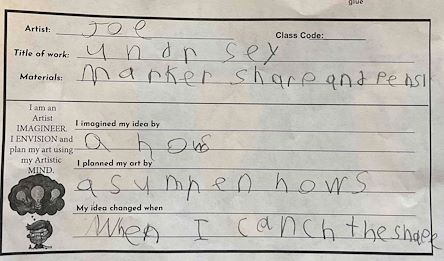 glue
Artist: Joe
Class Code:
Title of work: undr sey
Materials: marker share and pensl
I am an
Artist
IMAGINEER.
I ENVISION and
plan my art using
my Artistic
MIND.
I imagined my idea by
a hows
I planned my art by
a sumpen hows
My idea changed when
When I canch the shape